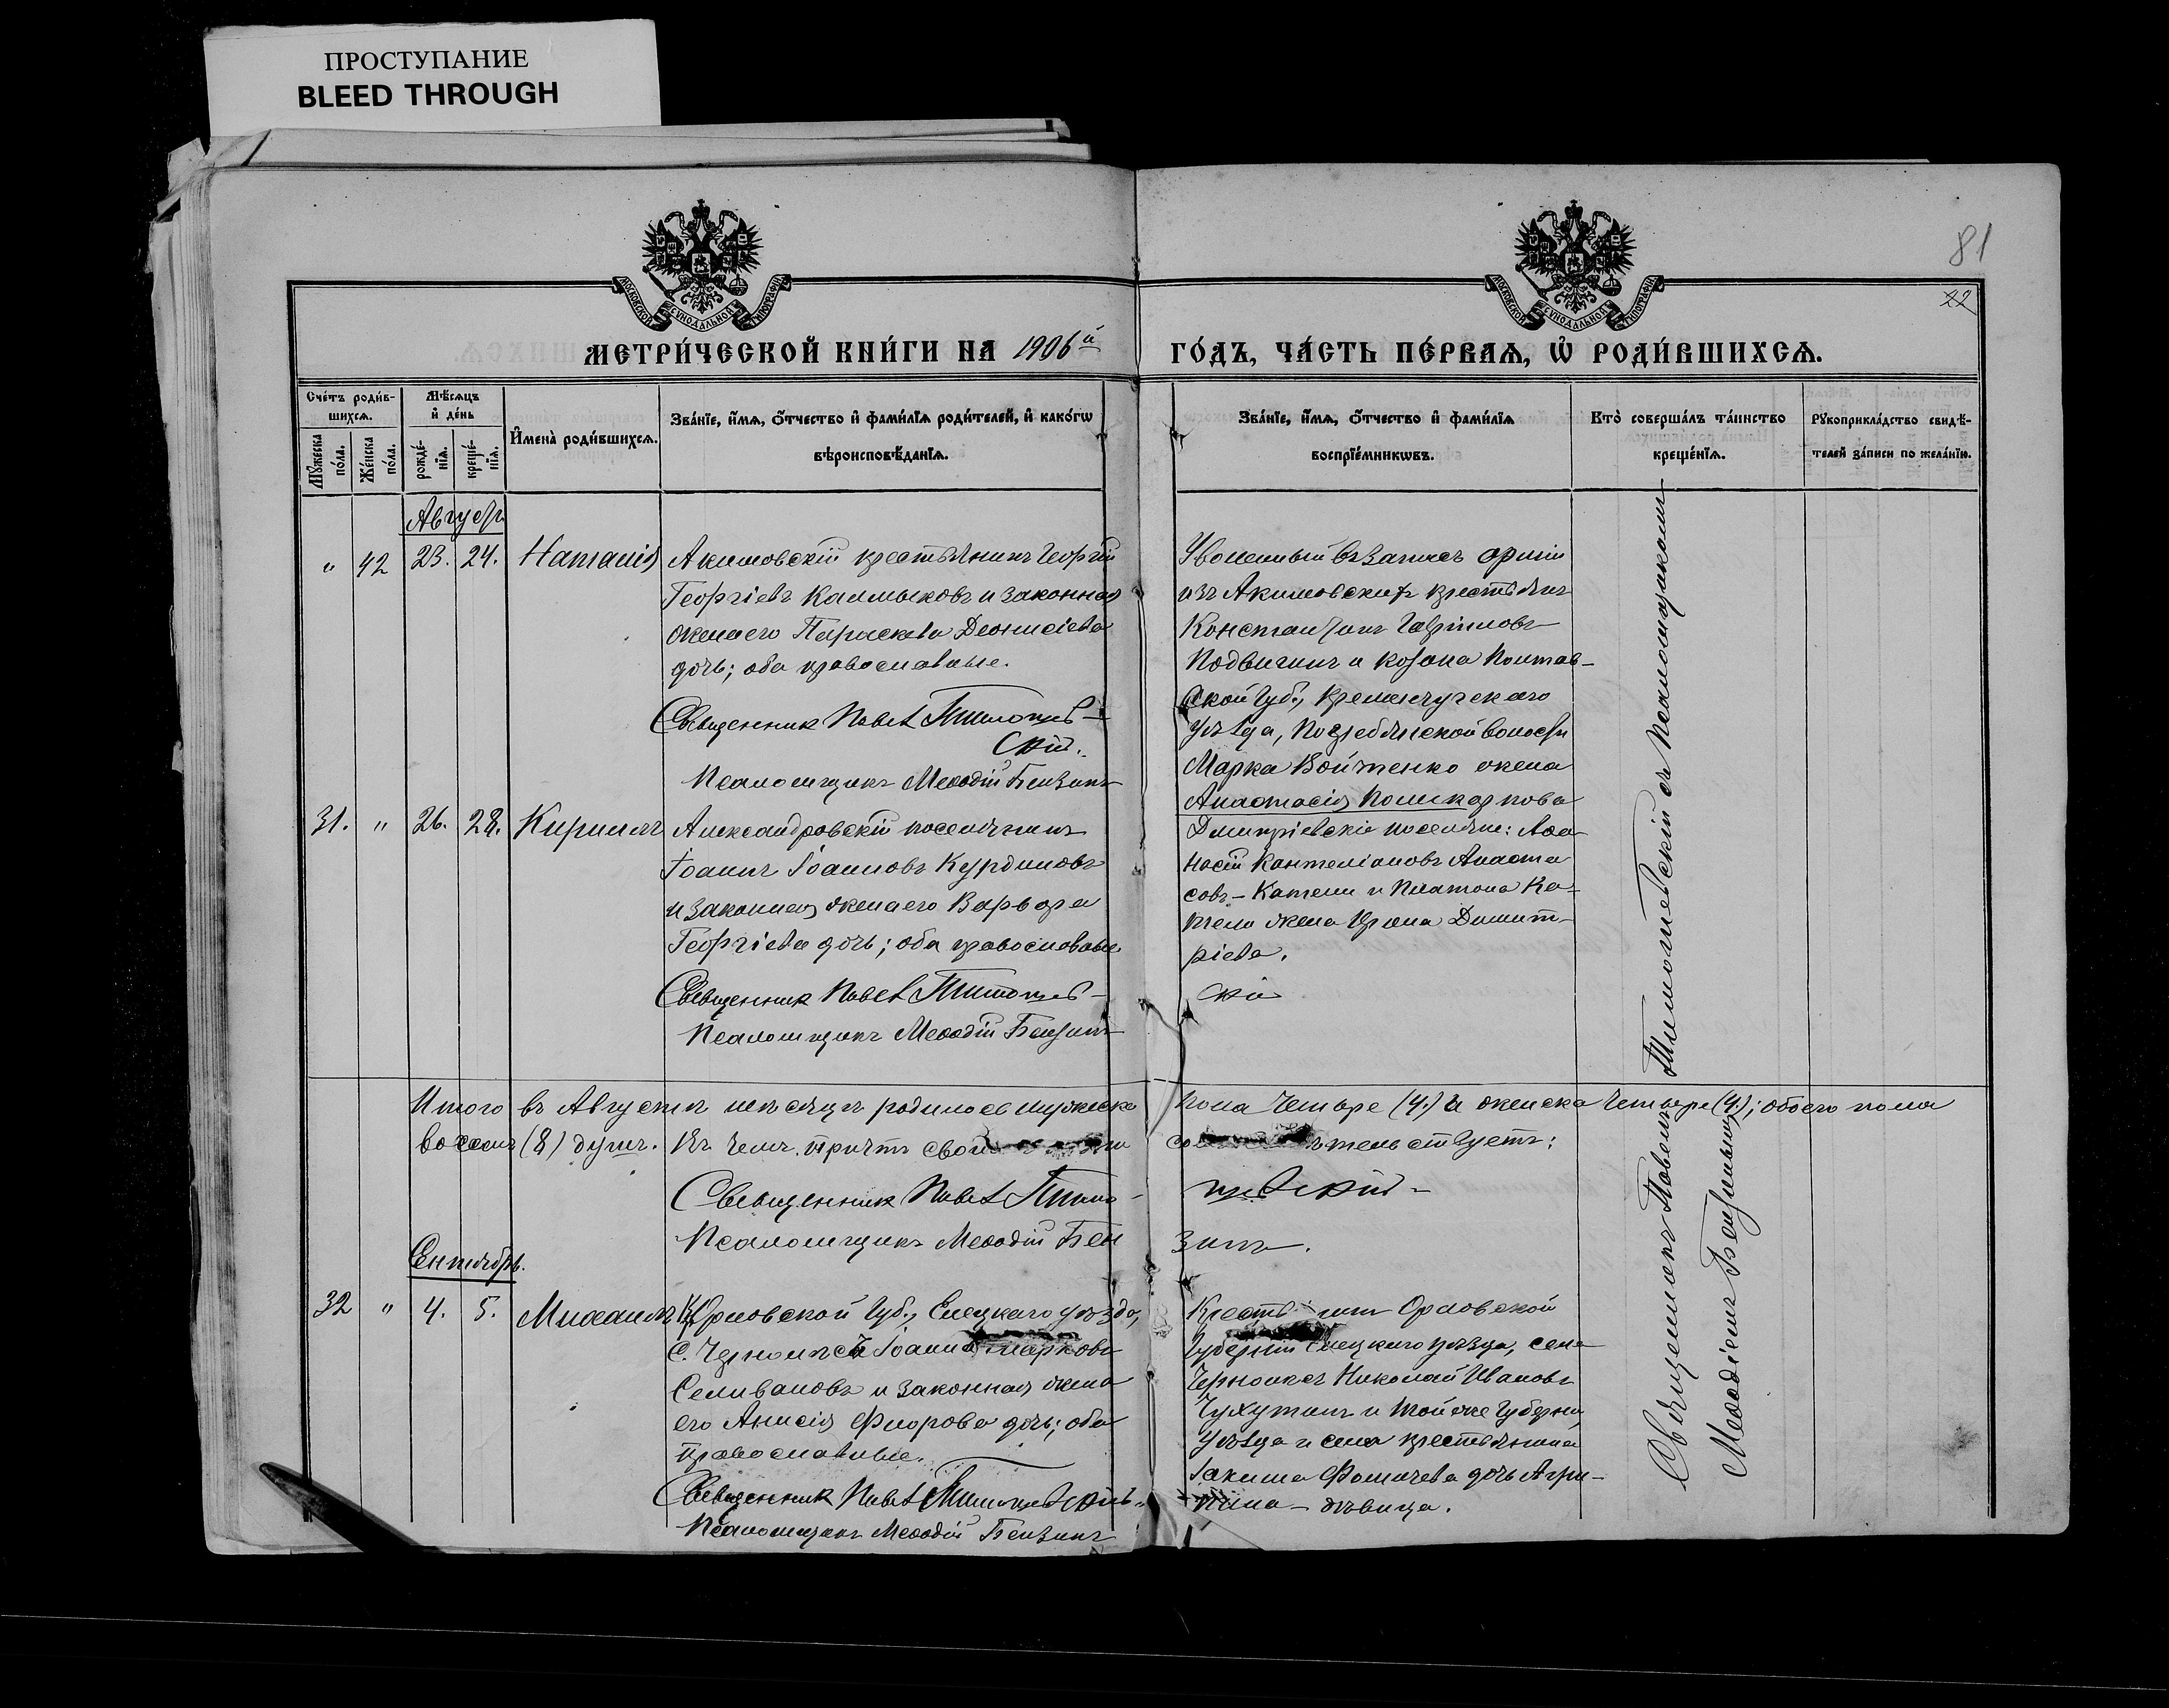 ПРОСТУПАНИЕ
BLEED THROUGH
МОСКОВСКОЙ СѴНОДАЛЬНОЙ ТИПОГРАФІИ
МОСКОВСКОЙ СѴНОДАЛЬНОЙ ТИПОГРАФІИ
81
22
МЕТРИ́ЧЕСКОЙ КНИ́ГИ НА 1906й
ГО́ДЪ, ЧА́СТЬ ПЕ́РВАѦ, Ѡ҆ РОДИ́ВШИХСѦ.
Сче́тъ роди́в-
шихсѧ.
Мꙋ́жеска
по́ла.
Же́нска
по́ла.
Мѣ́сѧцъ
и҆ де́нь
рожде́-
нїѧ.
креще́-
нїѧ.
И҆мена̀ роди́вшихсѧ.
Зва́нїе, и҆́мѧ, ѻ҆́тчество и҆ фами́лїѧ роди́телей, и҆ како́гѡ
вѣроисповѣ́данїѧ.
Зва́нїе, и҆́мѧ, ѻ҆́тчество и҆ фами́лїѧ
воспрїе́мникѡвъ.
Кто̀ соверша́лъ та́инство
креще́нїѧ.
Рꙋкоприкла́дство свидѣ́-
телей за́писи по жела́нїю.
Августъ
" 42 23. 24. Наталія
Акимовскій крестьянинъ Георгій
Георгіевъ Калмыковъ и законная
жена его Параскева Деонисіева
дочь; оба православные.
Священник Павел Тимошев-
скій.
Псаломщикъ Меѳодій Бензинъ
Уволенный въ запасъ арміи
изъ Акимовскихъ крестьянъ
Константинъ Гавриловъ
Подвигинъ и козака Полтав-
ской Губ., Кременчугскаго
уѣзда, волости
Марка Войтенко жена
Анастасія Поликарпова
31. " 26. 28. Кириллъ
Александровскій поселянинъ
Іоаннъ Іоанновъ Курдиновъ
и законная жена его Варвара
Георгіева дочь; оба православные
Священник Павел Тимошев-
Псаломщикъ Меѳодій Бензинъ
Димитріевскіе поселяне: Аѳа-
насій Анаста
совъ - Кателли и Платона Ка-
тели жена Ирина Димит-
ріева.
скій
Итого въ Августѣ мѣсяцѣ родилось мужеска пола четыре (4.) и женска четыре (4.); обоего пола
восемь (8) душъ. Въ чемъ причтъ свои тельствуетъ:
Священник Павел Тимо- шевскій -
Псаломщикъ Меѳодій Бен зинъ.
Сентябрь.
32 " 4. 5. Михаилъ
Орловской Губ., Елецкаго уѣзда,
с. Іоаннъ Марковъ
Селивановъ и законная жена
его Анисія Флорова дочь; оба
православные.
Священник Павел Тимошевскій.
Псаломщикъ Меѳодій Бензинъ
Орловской
Губерніи Елецкаго уѣзда, села
Николай Ивановъ
и той же Губерніи
уѣзда и села крестьянина
Іакима Фомичева дочь Агри-
пина - дѣвица.
Священникъ Павелъ Тимошевскій съ Псаломщикомъ
Меѳодіемъ Бензинымъ